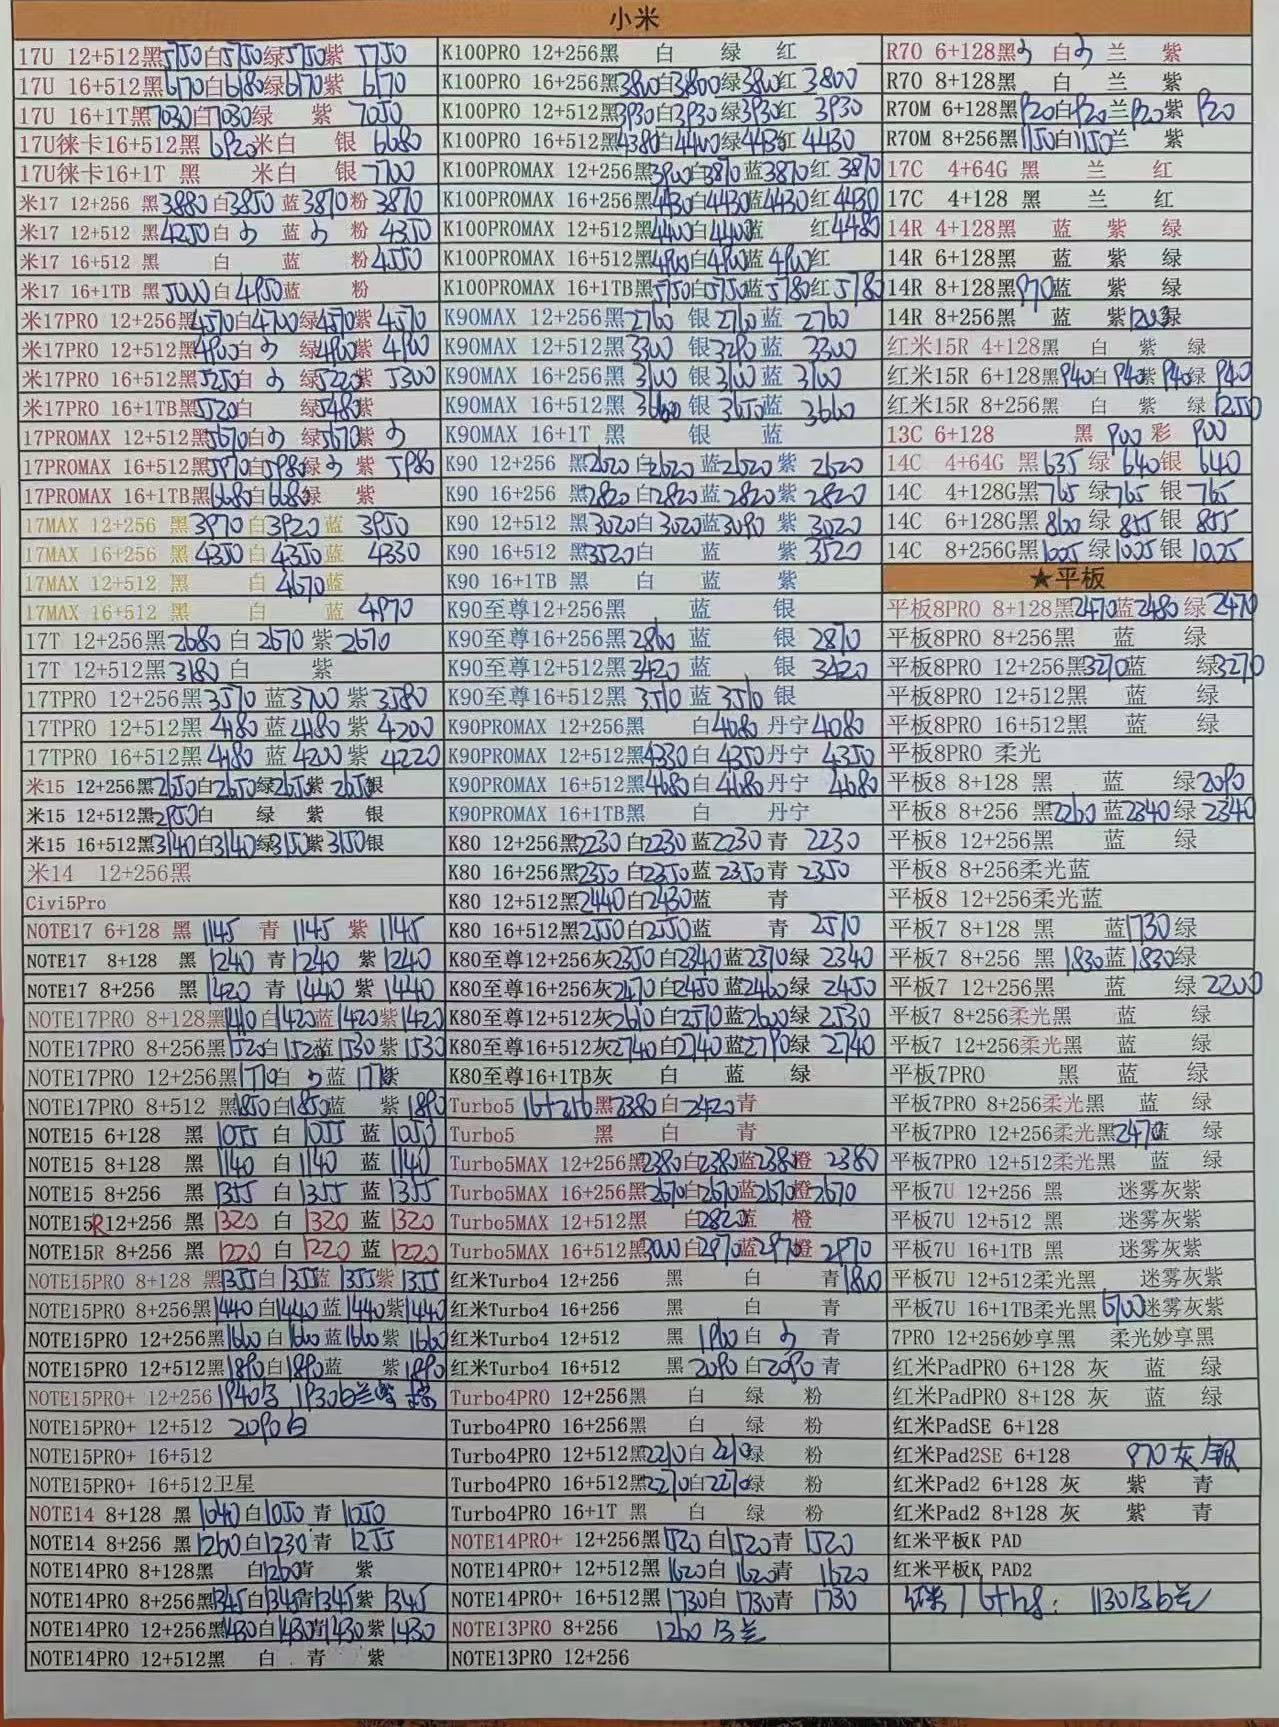 小米
17U 12+512黑5750白5750绿5750紫 5750
17U 16+512黑6170白6180绿6170紫 6170
17U 16+1T黑7030白7030绿 紫 7050
17U徕卡16+512黑 6920米白 银 6680
17U徕卡16+1T 黑 米白 银 7700
米17 12+256 黑3880白3850 蓝 3870粉 3870
米17 12+512 黑4250白 蓝 粉 4350
米17 16+512 黑 白 蓝 粉4550
米17 16+1TB 黑5000白4950蓝 粉
米17PRO 12+256黑4570白4700绿4570紫 4570
米17PRO 12+512黑4900白 绿4900紫 4900
米17PRO 16+512黑5250白 绿5220紫 5300
米17PRO 16+1TB黑5520白 绿5480紫
17PROMAX 12+512黑5670白 绿5670紫
17PROMAX 16+512黑5970白5980绿 紫 5980
17PROMAX 16+1TB黑6680白6680绿 紫
17MAX 12+256 黑3970白3920蓝 3950
17MAX 16+256 黑4350白4350蓝 4330
17MAX 12+512 黑 白 4670蓝
17MAX 16+512 黑 白 蓝 4970
17T 12+256黑2680 白 2670 紫 2670
17T 12+512黑3180 白 紫
17TPRO 12+256黑3570 蓝3700 紫 3580
17TPRO 12+512黑 4180 蓝4180 紫 4200
17TPRO 16+512黑 4180 蓝 4200 紫 4220
米15 12+256黑2650白2650绿2650紫 2650银
米15 12+512黑2950白 绿 紫 银
米15 16+512黑3140白3140绿3150紫3150银
米14 12+256黑
Civi5Pro
NOTE17 6+128 黑 1145 青 1145 紫 1145
NOTE17 8+128 黑 1240 青 1240 紫 1240
NOTE17 8+256 黑 1420 青 1440 紫 1440
NOTE17PRO 8+128黑1410白1420蓝1420紫1420
NOTE17PRO 8+256黑1520白1520蓝1530紫1530
NOTE17PRO 12+256黑1770白 蓝 177紫
NOTE17PRO 8+512 黑1850白1850蓝 紫1890
NOTE15 6+128 黑 1055 白 1055 蓝 1050
NOTE15 8+128 黑 1140 白 1140 蓝 1140
NOTE15 8+256 黑 1355 白 1355 蓝1355
NOTE15R12+256 黑 1320 白 1320 蓝 1320
NOTE15R 8+256 黑 1220 白 1220 蓝 1220
NOTE15PRO 8+128 黑1355白1355蓝 1355紫1355
NOTE15PRO 8+256黑1440白1440 蓝 1440紫1440
NOTE15PRO 12+256黑1660白 1660蓝1660紫 1660
NOTE15PRO 12+512黑1890白1890蓝 紫1890
NOTE15PRO+ 12+256 1940 1930白兰
NOTE15PRO+ 12+512 2090白
NOTE15PRO+ 16+512
NOTE15PRO+ 16+512卫星
NOTE14 8+128 黑 1040白1050 青 1050
NOTE14 8+256 黑 1260白1230青 1255
NOTE14PRO 8+128黑 白1260青 紫
NOTE14PRO 8+256黑1345白1345青1345紫 1345
NOTE14PRO 12+256黑1430白1430青1430紫1430
NOTE14PRO 12+512黑 白 青 紫
K100PRO 12+256黑 白 绿 红
K100PRO 16+256黑3800白3800绿3800红 3800
K100PRO 12+512黑3930白3930 绿3930红 3930
K100PRO 16+512黑4380白4400绿4430红 4430
K100PROMAX 12+256黑3900白3870蓝3870红 3870
K100PROMAX 16+256黑4430白4430蓝4430红4430
K100PROMAX 12+512黑4400白4400蓝 红4480
K100PROMAX 16+512黑4900白4900蓝4900红
K100PROMAX 16+1TB黑5750白5750蓝5780红5780
K90MAX 12+256黑2760 银2760蓝 2760
K90MAX 12+512黑3300 银3290 蓝 3300
K90MAX 16+256黑3100 银3100蓝 3100
K90MAX 16+512黑3660 银 3650蓝 3660
K90MAX 16+1T 黑 银 蓝
K90 12+256 黑2620白2620 蓝2620 紫 2620
K90 16+256 黑2820 白2820 蓝2820 紫2820
K90 12+512 黑3020白3020蓝3090 紫3020
K90 16+512 黑3520白 蓝 紫3520
K90 16+1TB 黑 白 蓝 紫
K90至尊12+256黑 蓝 银
K90至尊16+256黑2860 蓝 银 2870
K90至尊12+512黑3420 蓝 银 3420
K90至尊16+512黑3510 蓝 3510 银
K90PROMAX 12+256黑 白4080 丹宁4080
K90PROMAX 12+512黑4330白 4350 丹宁 4350
K90PROMAX 16+512黑4680白 4680 丹宁 4680
K90PROMAX 16+1TB黑 白 丹宁
K80 12+256黑2230 白2230 蓝2230 青 2230
K80 16+256黑2350 白2350蓝 2350青 2350
K80 12+512 黑2440白2430蓝 青
K80 16+512黑2550白2550蓝 青 2510
K80至尊12+256灰2350白2340蓝2370绿 2340
K80至尊16+256灰2470白2450蓝2460绿 2450
K80至尊12+512灰2610白2570蓝2600绿 2530
K80至尊16+512灰2740白2740蓝2790绿 2740
K80至尊16+1TB灰 白 蓝 绿
Turbo5 16+256黑2380白2420青
Turbo5 黑 白 青
Turbo5MAX 12+256黑2380白2380蓝2380橙 2380
Turbo5MAX 16+256黑2670白2670蓝2670橙2670
Turbo5MAX 12+512黑 白2820蓝 橙
Turbo5MAX 16+512黑3000白2970蓝2970橙 2970
红米Turbo4 12+256 黑 白 青1800
红米Turbo4 16+256 黑 白 青
红米Turbo4 12+512 黑 1960白 青
红米Turbo4 16+512 黑 2090白2090 青
Turbo4PRO 12+256黑 白 绿 粉
Turbo4PRO 16+256黑 白 绿 粉
Turbo4PRO 12+512黑2210白2210绿 粉
Turbo4PRO 16+512黑2270白2270绿 粉
Turbo4PRO 16+1T 黑 白 绿 粉
NOTE14PRO+ 12+256黑1520 白1520青 1520
NOTE14PRO+ 12+512黑1620白1620青 1620
NOTE14PRO+ 16+512黑1730白1730青 1730
NOTE13PRO 8+256 1260 兰
NOTE13PRO 12+256
R70 6+128黑 白 兰 紫
R70 8+128黑 白 兰 紫
R70M 6+128黑920白920兰920紫 920
R70M 8+256黑1150白1150兰 紫
17C 4+64G 黑 兰 红
17C 4+128 黑 兰 红
14R 4+128黑 蓝 紫 绿
14R 6+128黑 蓝 紫 绿
14R 8+128黑970蓝 紫 绿
14R 8+256黑 蓝 紫1203绿
红米15R 4+128黑 白 紫 绿
红米15R 6+128黑940白 940紫 940绿 940
红米15R 8+256黑 白 紫 绿1250
13C 6+128 黑 900 彩 900
14C 4+64G 黑635 绿 640银 640
14C 4+128G黑765 绿765 银 765
14C 6+128G黑860 绿 855 银 855
14C 8+256G黑1025 绿1025银 1025
★平板
平板8PRO 8+128黑2470蓝2480 绿2470
平板8PRO 8+256黑 蓝 绿
平板8PRO 12+256黑3270蓝 绿3270
平板8PRO 12+512黑 蓝 绿
平板8PRO 16+512黑 蓝 绿
平板8PRO 柔光
平板8 8+128 黑 蓝 绿2090
平板8 8+256 黑2260 蓝2340绿 2340
平板8 12+256黑 蓝 绿
平板8 8+256柔光蓝
平板8 12+256柔光蓝
平板7 8+128 黑 蓝1730绿
平板7 8+256 黑 1830蓝1830绿
平板7 12+256黑 蓝 绿 2200
平板7 8+256柔光黑 蓝 绿
平板7 12+256柔光黑 蓝 绿
平板7PRO 黑 蓝 绿
平板7PRO 8+256柔光黑 蓝 绿
平板7PRO 12+256柔光黑2470蓝 绿
平板7PRO 12+512柔光黑 蓝 绿
平板7U 12+256 黑 迷雾灰紫
平板7U 12+512 黑 迷雾灰紫
平板7U 16+1TB 黑 迷雾灰紫
平板7U 12+512柔光黑 迷雾灰紫
平板7U 16+1TB柔光黑6700迷雾灰紫
7PRO 12+256妙享黑 柔光妙享黑
红米PadPRO 6+128 灰 蓝 绿
红米PadPRO 8+128 灰 蓝 绿
红米PadSE 6+128
红米Pad2SE 6+128 970灰/银
红米Pad2 6+128 灰 紫 青
红米Pad2 8+128 灰 紫 青
红米平板K PAD
红米平板K PAD2
1130